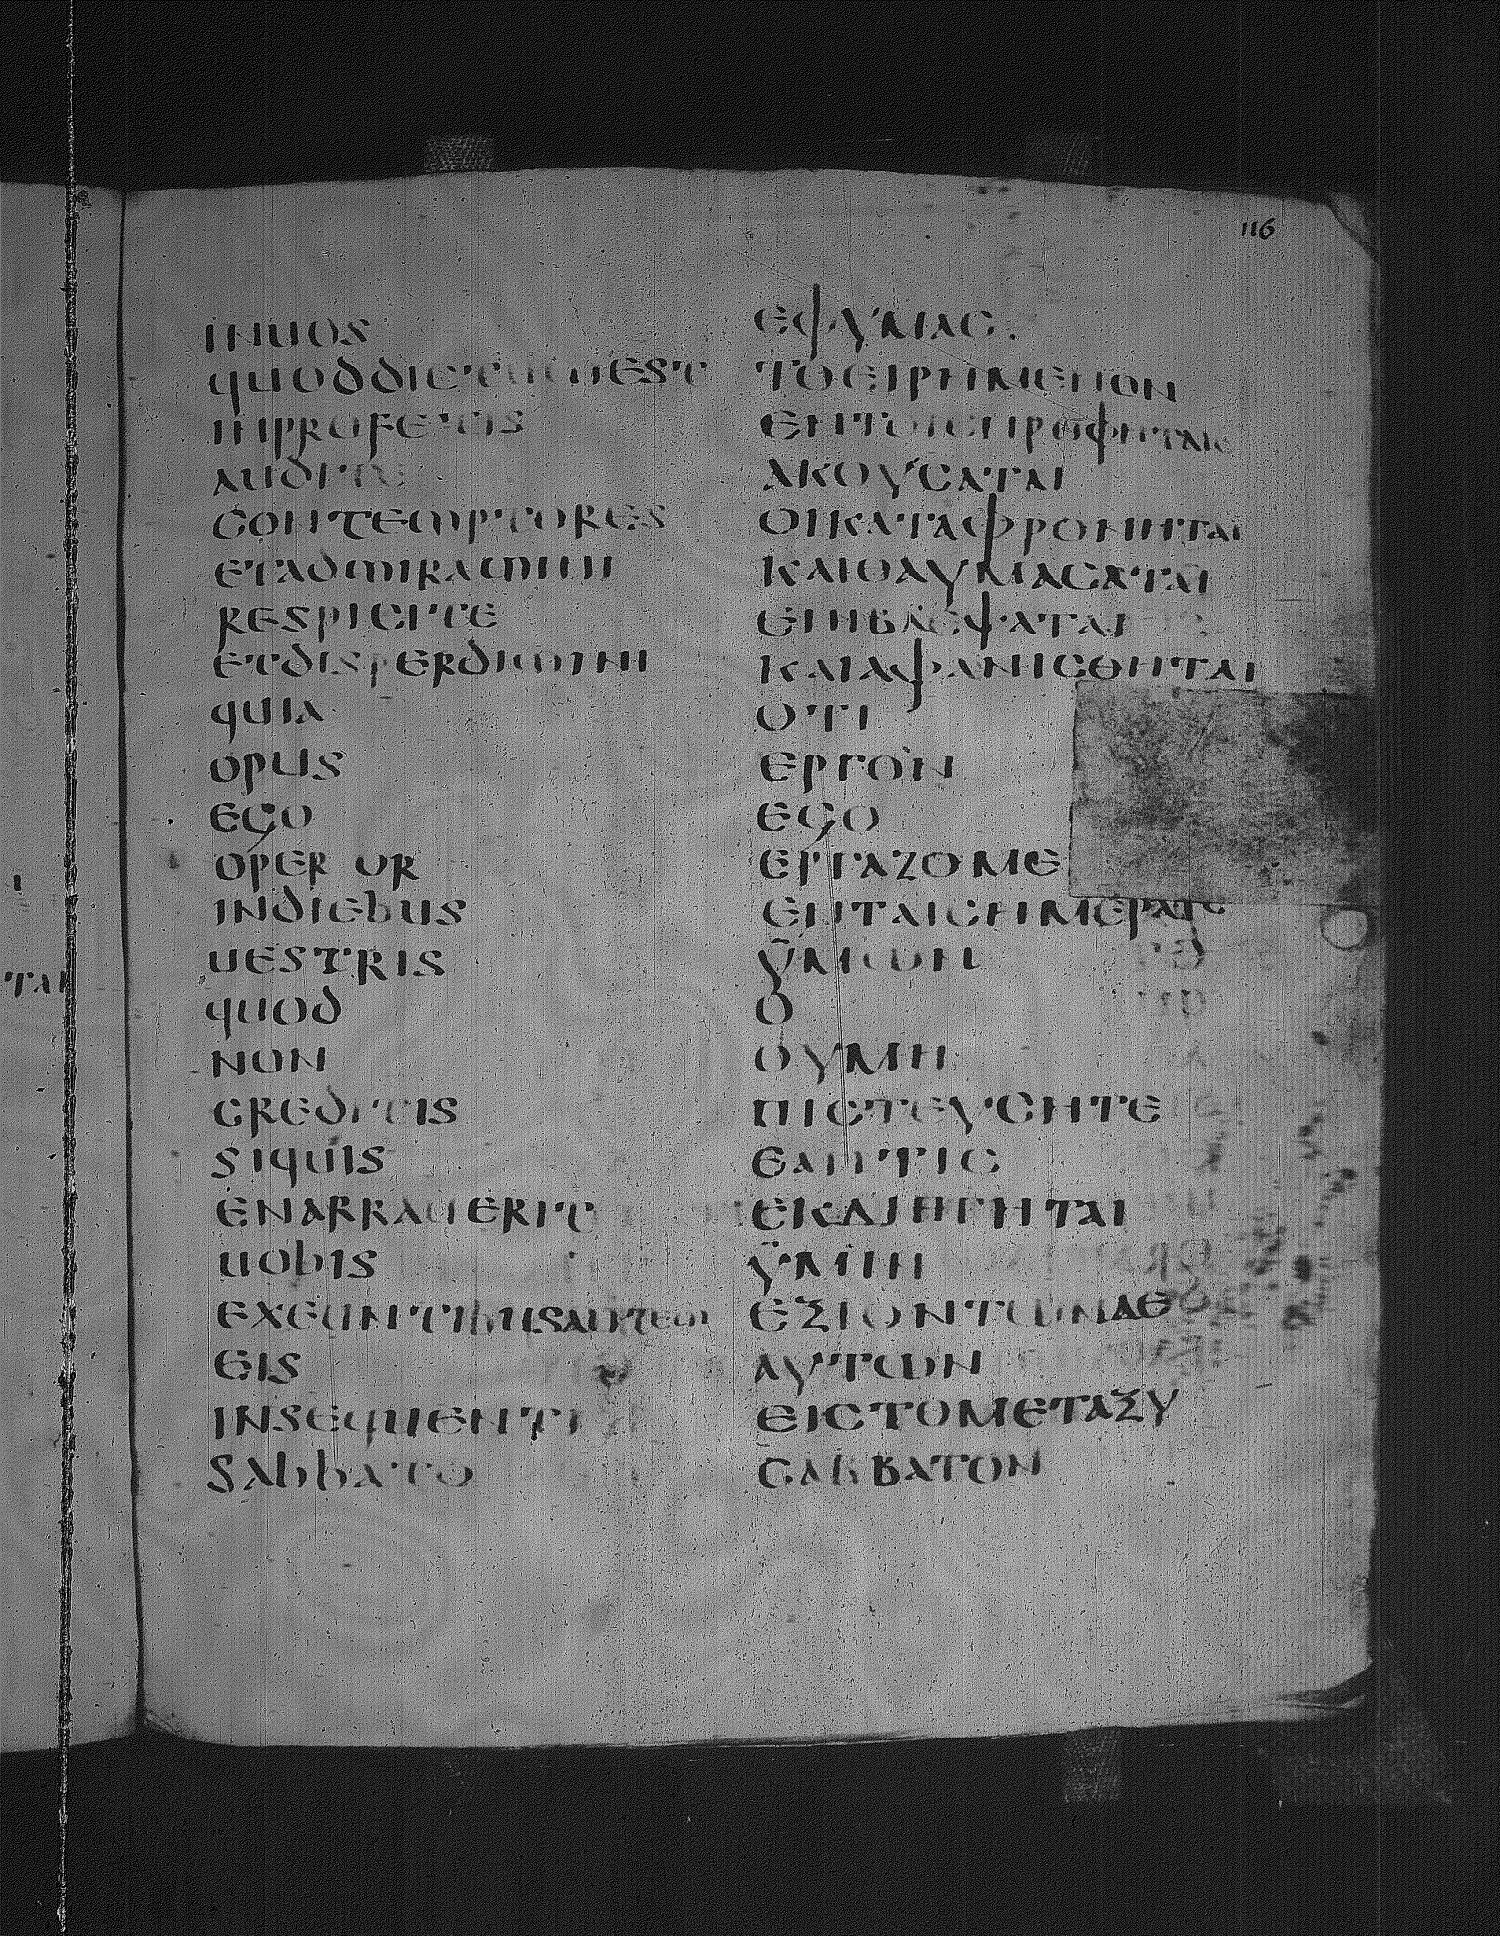 116
INUOS
QUODDICTUMEST
INPROFETIS
AUDITE
CONTEMPTORES
ETADMIRAMINI
RESPICITE
ETDISPERDIMINI
QUIA
OPUS
EGO
OPER OR
INDIEBUS
UESTRIS
QUOD
NON
CREDITIS
SIQUIS
ENARRAUERIT
UOBIS
EXEUNTIBUSAUTEM
EIS
INSEQUENTI
SABBATO
ΕΦΥΜΑΣ.
ΤΟΕΙΡΗΜΕΝΟΝ
ΕΝΤΟΙϹΠΡΟΦΗΤΑΙϹ
ΑΚΟΥϹΑΤΑΙ
ΟΙΚΑΤΑΦΡΟΝΗΤΑΙ
ΚΑΙΘΑΥΜΑϹΑΤΑΙ
ΕΠΙΒΛΕΨΑΤΑΙ
ΚΑΙΑΦΑΝΙϹΘΗΤΑΙ
ΟΤΙ
ΕΡΓΟΝ
ΕGΟ
ΕΡΓΑΖΟΜΕ
ΕΝΤΑΙϹΗΜΕΡΑΙϹ
ΫΜΩΝ
Ο
ΟΥΜΗ
ΠΙϹΤΕΥϹΗΤΕ
ΕΑΝΤΙϹ
ΕΚΔΙΗΓΗΤΑΙ
ΫΜΙΝ
ΕΞΙΟΝΤΩΝΔΕ
ΑΥΤΩΝ
ΕΙϹΤΟΜΕΤΑΞΥ
ϹΑΒΒΑΤΟΝ
ΤΑΙ